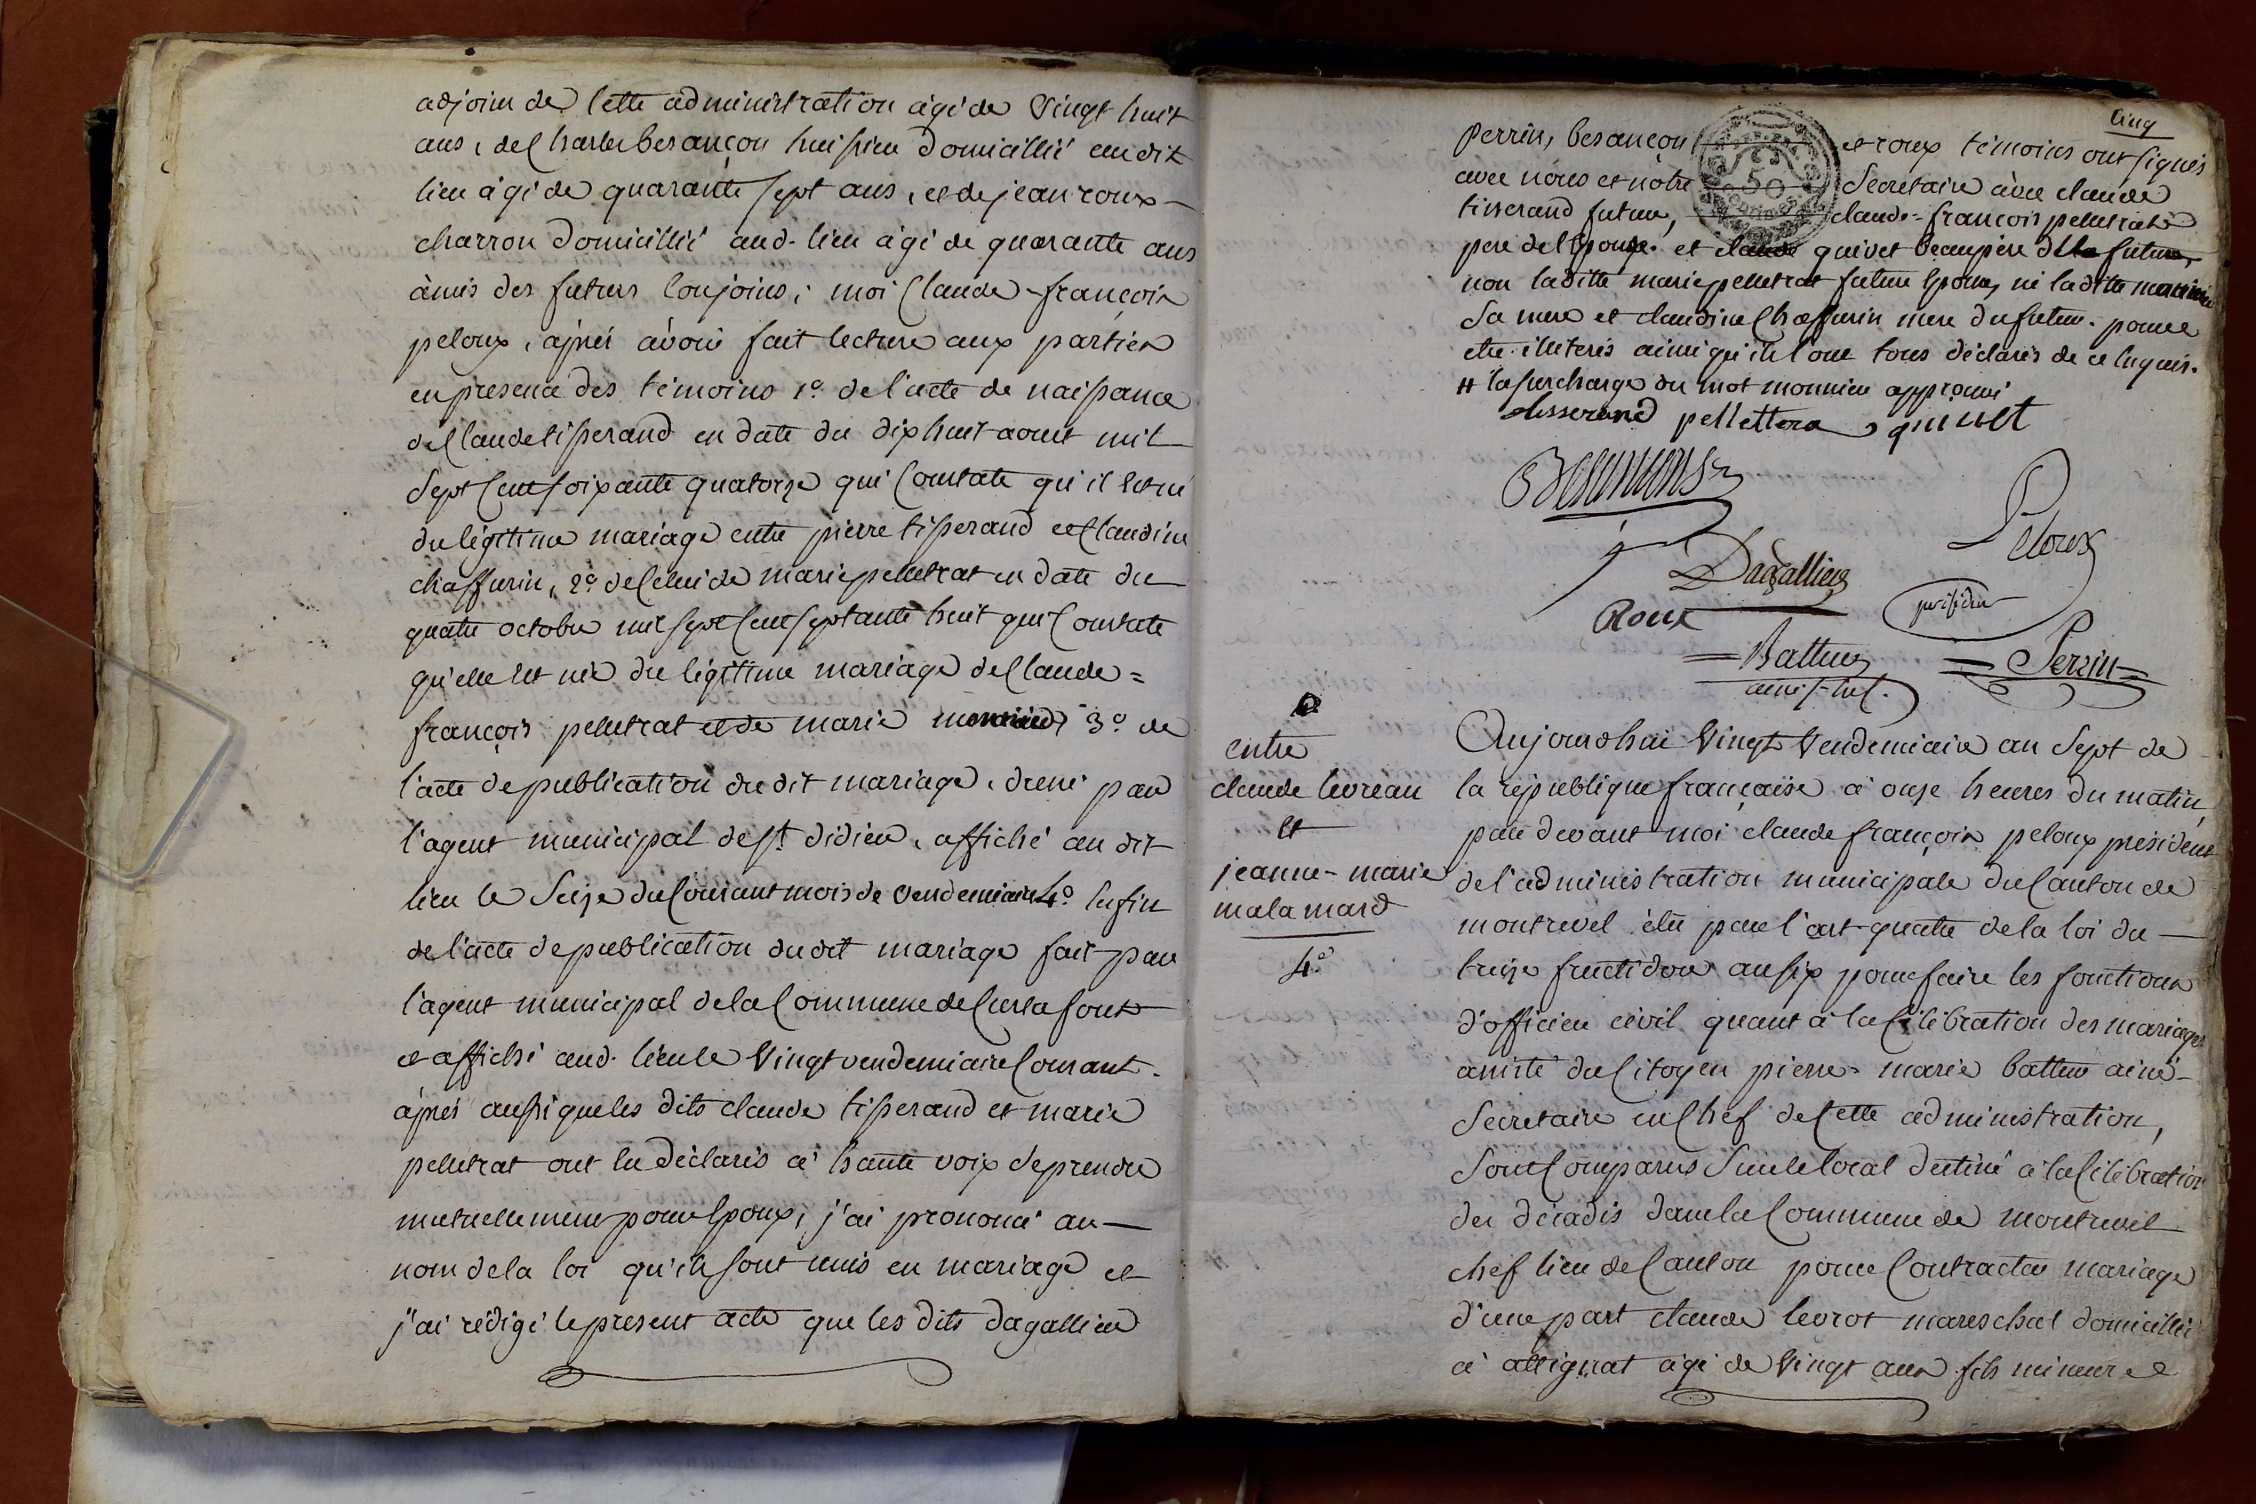 adjoin de cette administration âgé de vingt huit
ans, de Charle besançon huissier domicillié au dit
lieu âgé de quarante sept ans, et de jean roux
charron domicillié aud. lieu âgé de quarante ans
âmis des futurs conjoins, moi Claude-françois
peloux, après avoir fait lecture aux parties
en presence des témoins 1º de l'acte de naissance
de Claude tisserand en date du dix huit aout mil
sept cent soixante quatorze qui constate qu'il est né
du légitime mariage entre pierre tisserand et Claudine
chaffurin, 2º de celui de marie pelletrat en date du
quatre octobre mil sept cent septante huit qui constate
qu'elle est née du légitime mariage de Claude=
françois pelletrat et de marie monnier, 3º de
l'acte de publication du dit mariage, dréné par
l'agent municipal de st. didier, affiché au dit
lieu le seize du Courant mois de vendemiaire 4º enfin
de l'acte de publication dudit mariage fait par
l'agent municipal de la Commune de Curtafond
et affiché aud. lieu le vingt vendemiaire Courant.
après aussi que les dits claude tisserand et marie
pelletrat ont eu déclarés à haute voix de prendre
mutuellement pour Epoux, j'ai prononcé au
nom de la loi qu'ils sont unis en mariage et
j'ai rédigé le present acte que les dits dagallier
Cinq
perrin, besançon et roux témoins ont signés
avec nous et notre Secretaire avec claude
tisserand futur, claude=françois pelletrat
pere de l'Epouse. et claude quivet beaupere de la future,
non laditte marie pelletrat future Epouse, ni laditte monnier
sa mere et claudine Chaffurin mere du futur. pour
etre illiterés ainsi qu'ils l'ont tous déclarés de ce Enquis.
# la surcharge du mot monnier approuvé
tisserand pellettra quivet
Besançon
Peloux
Dagallier
président
Roux
Battur
ainé s. chef.
Perrin
entre
claude levreau
et
jeanne-marie
malamard
4º
Aujourdhui vingt vendemiaire an Sept de
la république française à onze heures du matin,
par devant moi claude françois peloux président
de l'administration municipale du Canton de
montrevel élu par l'art. quatre de la loi du
treize fructidor an six pour faire les fonctions
d'officier civil quant à la Célébration des mariages
assisté du Citoyen pierre-marie battur ainé
Secretaire en Chef de Cette administration,
Sont Comparus Sur le local destiné à la Célébration
des décadis dans la Commune de montrevel
chef lieu de Canton pour Contracter mariage
d'une part claude levrot mareschal domicillié
à attignat âgé de vingt ans fils mineur de